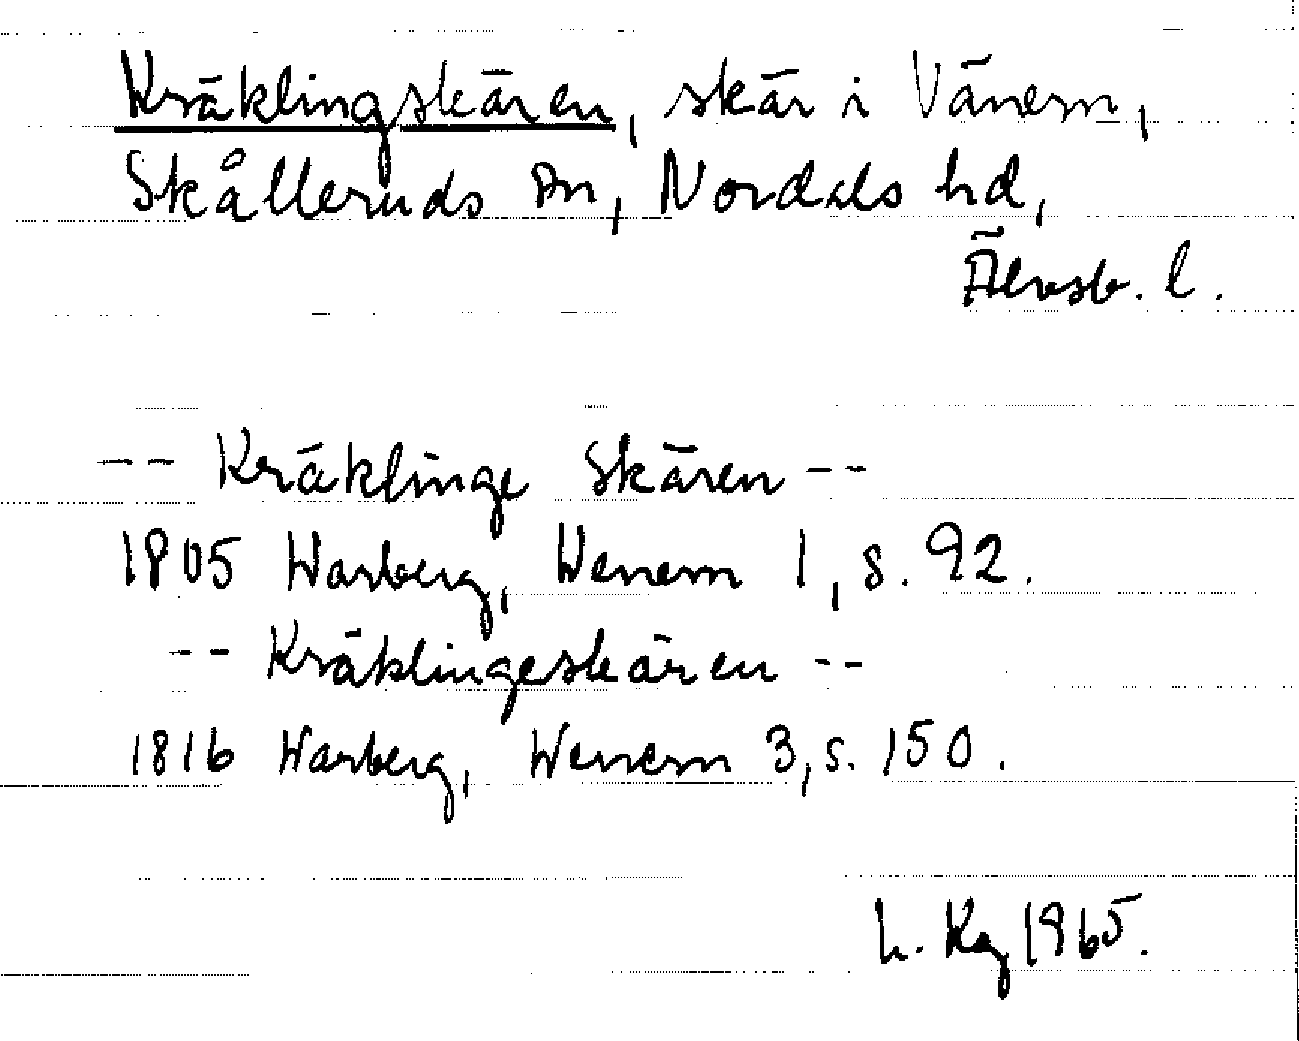 Kräklingskären, skär i Vänern,
Skålleruds sn, Nordals hd,
Älvsb. l.
-- Kräklinge Skären --
1805 Warberg, Wenern 1, s. 92.
-- Kräklingeskären --
1816 Warberg, Wenern 3, s. 150.
L. Kg 1965.